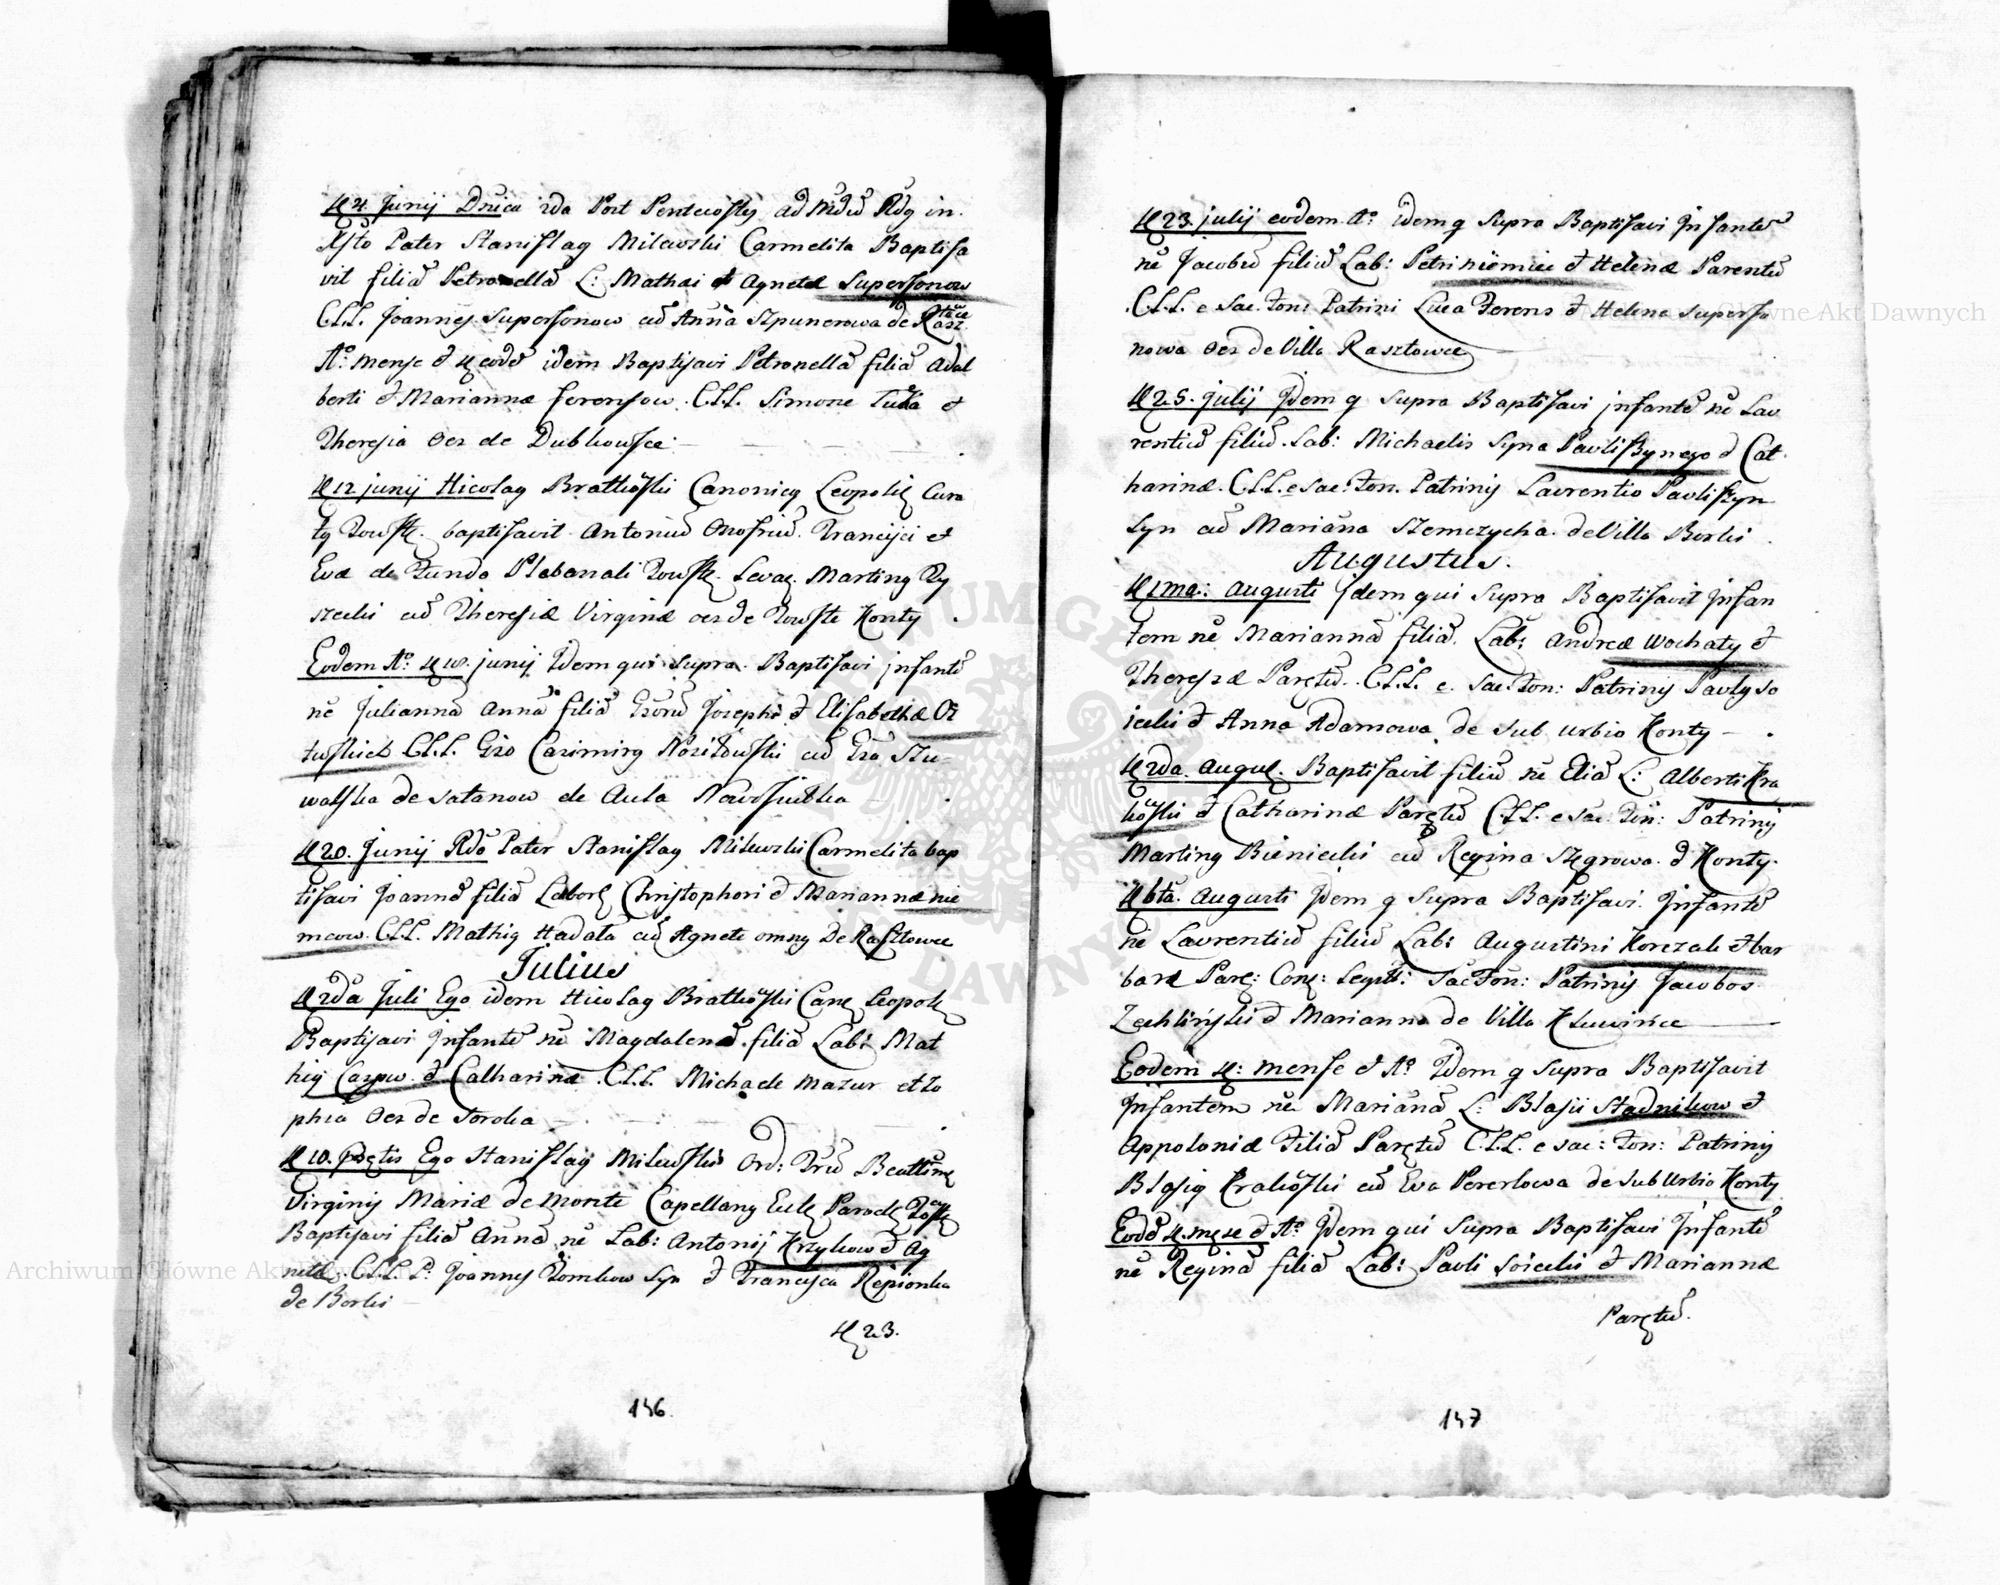 4. Junij Dnica 2da Post Pentecostes ad Mdũ Rdg in
Xsto Pater Stanislag Milewski Carmelita Baptisa
vit filiã Petronellã L: Mathai et Agnetæ Supersonow
C.L.L. Joannes Supersonow cũ Anna Szpunerowa de Rasz
towce
Aº mense & eodẽ idem Baptisavi Petronellã filiã Adal
berti & Mariannæ ferensow. C.L.L. Simone Tuka et
Theresia oes de Dubkowce
12 junij Nicolag Bratkõski Canonicg Leopolis Cura
tg Towste. baptisavit Antoniũ Onofriũ Francisci et
Evæ de Fundo Plebanali Towste. Leva. Marting Ry
szecki cũ Theresiæ Virginæ oes de Towste Konty
Eodem Aº 18. junij Idem qui supra Baptisavi jnfantẽ
nẽ Juliannã Annã filiã Josephi & Elisabethæ Oz
towskich C.L.L. Casimirg cũ Szu
walska de Satanow de Aula Nowosiułka
20. Junij Rdo Pater Stanislag Milewski Carmelita bap
tisavi Joannẽ filiũ Labor Christophori & Mariannæ nie
mcow. C.L.L. Mathig Hadała cũ Agnete omng De Rasztowce
Julius
2da Juli Ego idem Nicolag Bratkõski Can Leopol
Baptisavi Jnfantẽ nẽ Magdalenã filiã Lab: Mat
hig Carpow & Catharinæ C.L.L. Michaele Mazur et Zo
phia oes de Soroka
10. Ego Stanislag Milewski Ord: Frũ Beattimæ
Virginis Mariæ de Monte Capellang Eccl Paroch Tosts
Baptisavi filiã Annã nẽ Lab: Antonij Krzykow & Ag
netæ. C.L.L. P. Joannes Tomkow Syn & Francisca Repionka
de Borki
23.
146.
23. julij eodem Aº idem q supra Baptisavi Jnfantẽ
nẽ Jacobũ filiũ Lab: Petri niemiec & Helenæ Parentũ
C.L.L. e sac. Fon: Patrini Luca Ferens & Helena Superso
nowa oes de Villa Rasztowce
25. julij Jdem q supra Baptisavi jnfantẽ nẽ Lau
rentiũ filiũ Lab: Michaelis Syna Pavliszynego & Cat
harinæ. C.L.L. e sac: Fon. Patrinij Laurentio Pavliszyn
Syn cũ Mariãna Szemczycha. de Villa Borki
Augustus.
1ma: Augusti Jdem qui supra Baptisavit Jnfan
tem nẽ Mariannã filiã Lab: Andreæ Wochaty &
Theresiæ Parẽtũ. C.L.L. e. sac. Fon: Patrinij Pavly so
icki & Anna Adamowa de sub urbio Konty
2da. Augus. Baptisavit filiũ nẽ Eliã L: Alberti Kra
kõski & Catharinæ Parẽtũ C.L.L. e sac: Fõn: Patrinij
Marting Bieniecki cũ Regina Szęgrowa & Konty.
6ta. Augusti Jdem q supra Baptisavi Jnfantẽ
nẽ Laurentiũ filiũ Lab: Augustini Korczak & bar
baræ Par: Con: Legit: Sac Fon: Patrinij Jacobos
Zechliński & Marianna de Villa Kluwińce
Eodem mense & Aº Idem q supra Baptisavit
Jnfantem nẽ Mariãnã L: Blasii Stadnikow &
Appoloniæ Filiã Parẽtũ C.L.L. e sac: Fon: Patrinij
Blasig Krakõski cũ Eva Pererlowa de sub Urbio Konty
Eodẽ mẽse & Aº Jdem qui supra Baptisavi Jnfantẽ
nẽ Reginã filiã Lab: Pavli soicki & Mariannæ
Parẽtũ.
147
Archiwum Główne Akt Dawnych